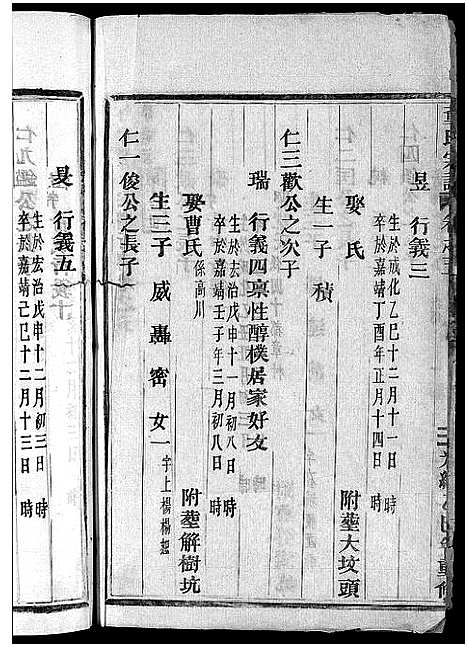 昱 行義三
生於成化乙巳十二月十一日 時
卒於嘉靖丁酉年正月十四日 時
娶 氏 附塟大坟頭
生一子 積
仁三歡公之次子
瑞 行義四禀性醇樸居家好友
生於宏治戊申十一月初八日 時
卒於嘉靖壬子年三月初八日 時
娶曹氏 係高川 附塟解樹坑
生三子 威 轟 密 女一 字上楊楊
仁一俊公之長子
行義五
生於宏治戊申十二月初三日 時
卒於嘉靖己巳十二月十三日 時